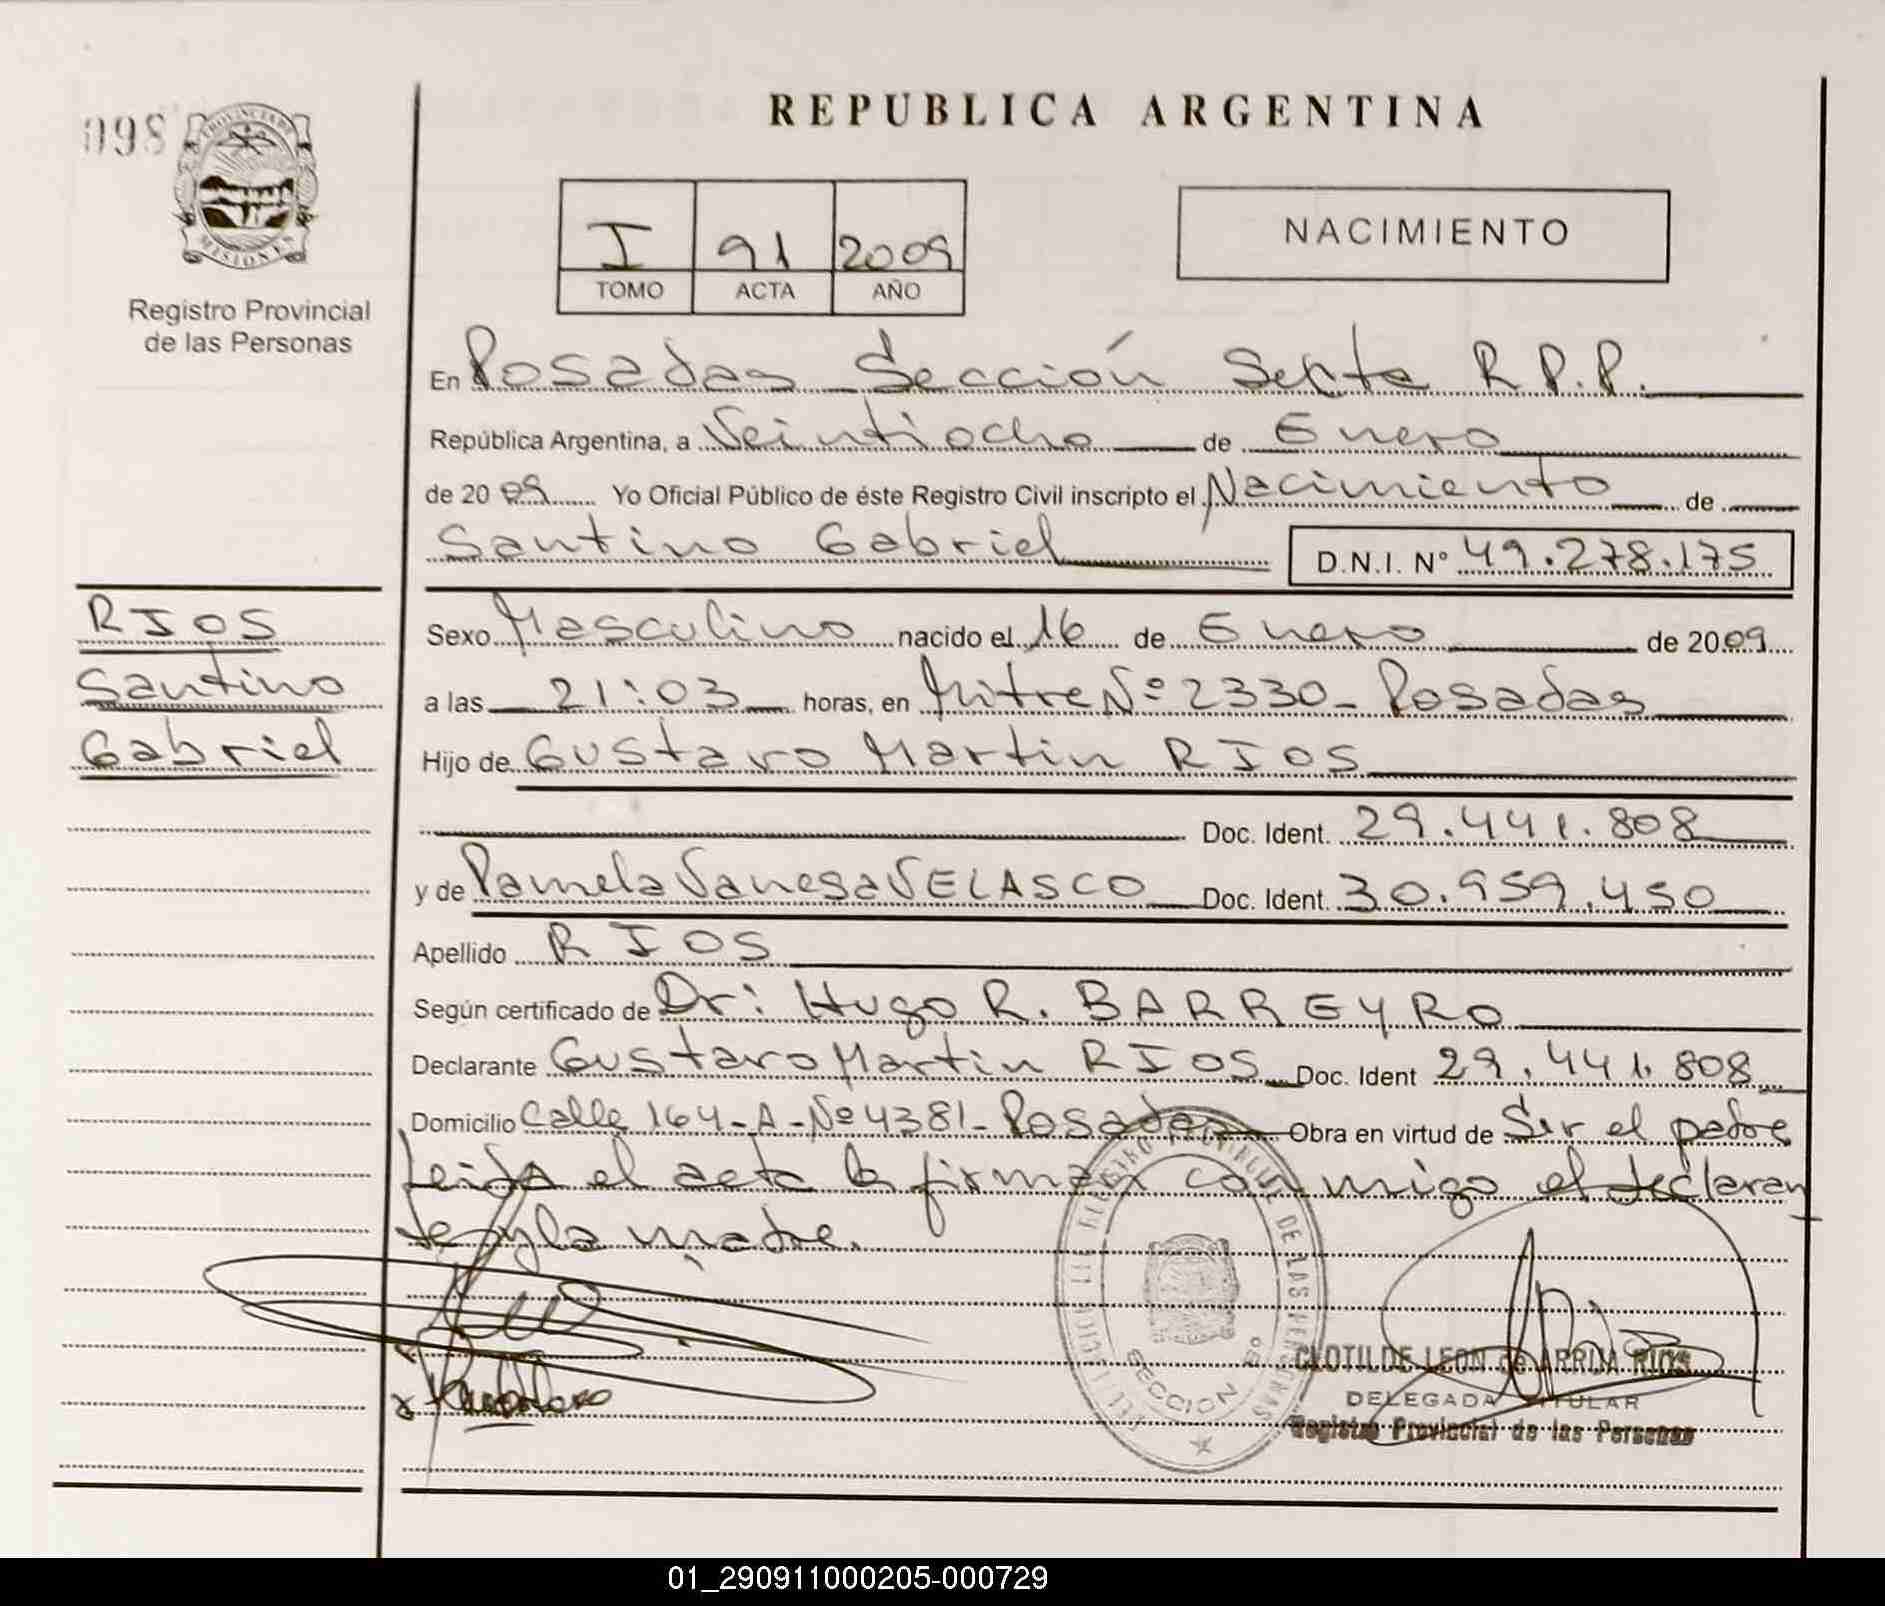 098
PROVINCIA DE
MISIONES
Registro Provincial
de las Personas
REPUBLICA ARGENTINA
I 91 2009
TOMO ACTA AÑO
NACIMIENTO
En Posadas Sección Sexta R.P.P.
República Argentina, a Veintiocho de Enero
de 20 09 Yo Oficial Público de éste Registro Civil inscripto el Nacimiento de
Santino Gabriel D.N.I. Nº 49.278.175
RIOS
Santino
Gabriel
Sexo Masculino nacido el 16 de Enero de 2009
a las 21:03 horas, en Mitre Nº 2330 - Posadas
Hijo de Gustavo Martin RIOS
Doc. Ident. 29.441.808
y de Pamela Vanesa VELASCO Doc. Ident. 30.959.450
Apellido RIOS
Según certificado de Dr: Hugo R. BARREYRO
Declarante Gustavo Martin RIOS Doc. Ident 29.441.808
Domicilio Calle 164-A-Nº 4381- Posadas Obra en virtud de Ser el padre
Leida el acta la firman conmigo el declaran
te y la madre.
SECCION 6º
CLOTILDE LEON de ARRIJA RIOS
DELEGADA TITULAR
Registro Provincial de las Personas
01_290911000205-000729